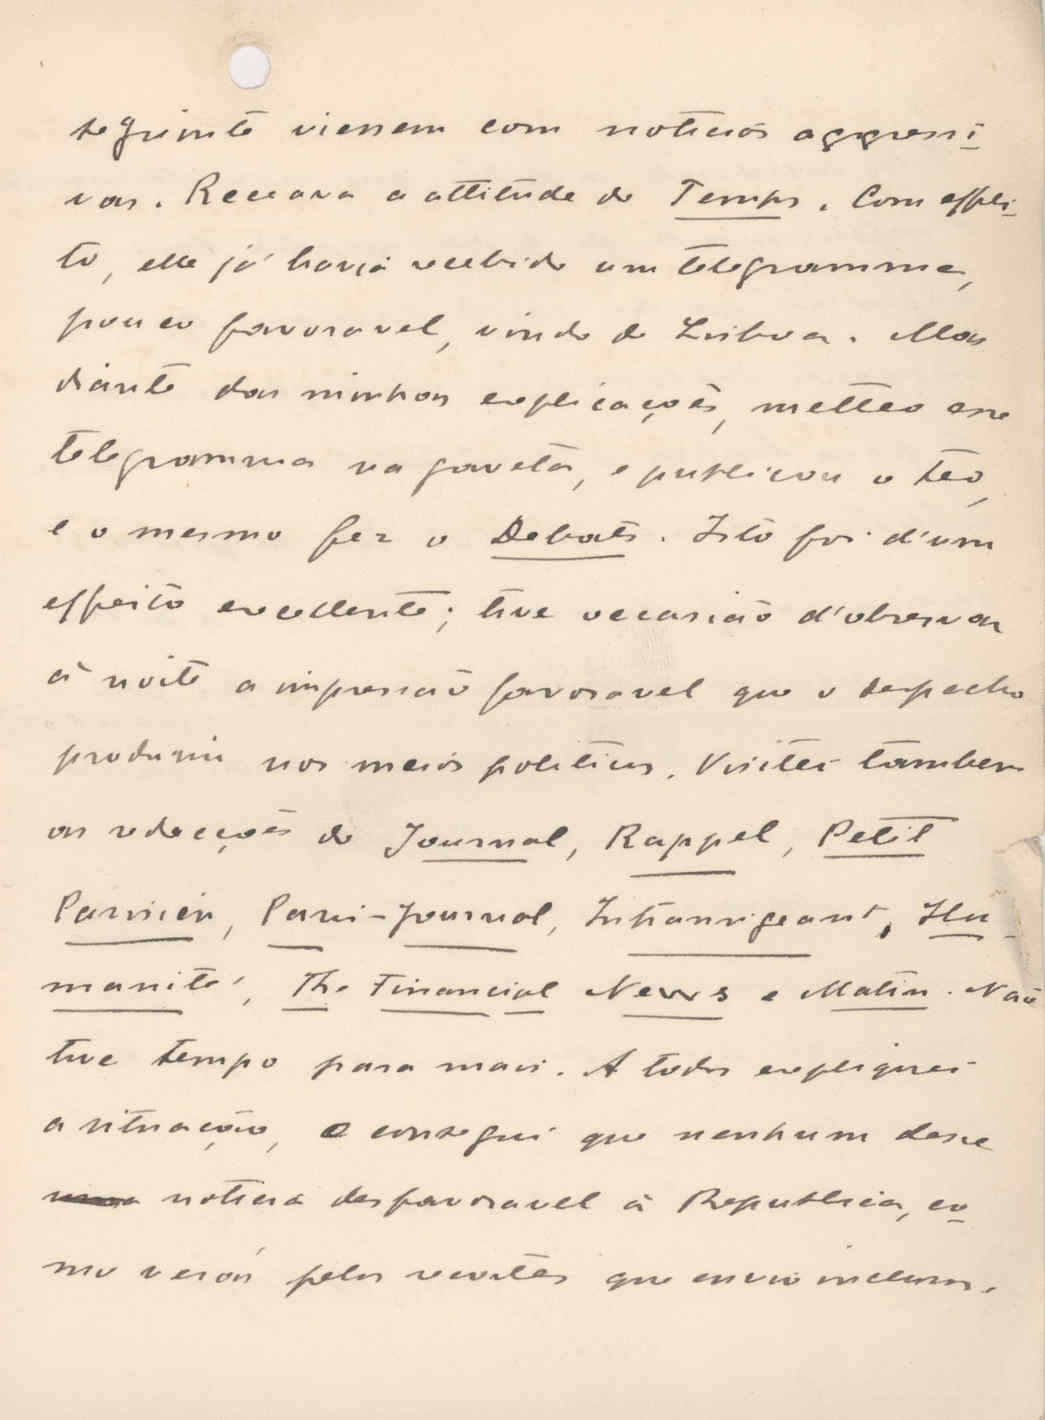 seguinte viessem com noticias aggressi-
vas. Receava a attitude do Temps. Com effei-
to, elle já havia recebido um telegramma,
pouco favoravel, vindo de Lisboa. Mas
diante das minhas explicações, metteo esse
telegramma na gaveta, e publicou o teo,
e o mesmo fez o Debats. Isto foi d'um
effeito excellente; tive occasião d'observar
á noite a impressão favoravel que o despacho
produziu nos meios politicos. Visitei tambem
as redacções do Journal, Rappel, Petit
Parisien, Paris-Journal, Intransigeant, Hu-
manité, The Financial News e Matin. Não
tive tempo para mais. A todos expliquei
a situação, e consegui que nenhum desse
noticia desfavoravel á Republica, co-
mo verás pelos recortes que envio inclusos.